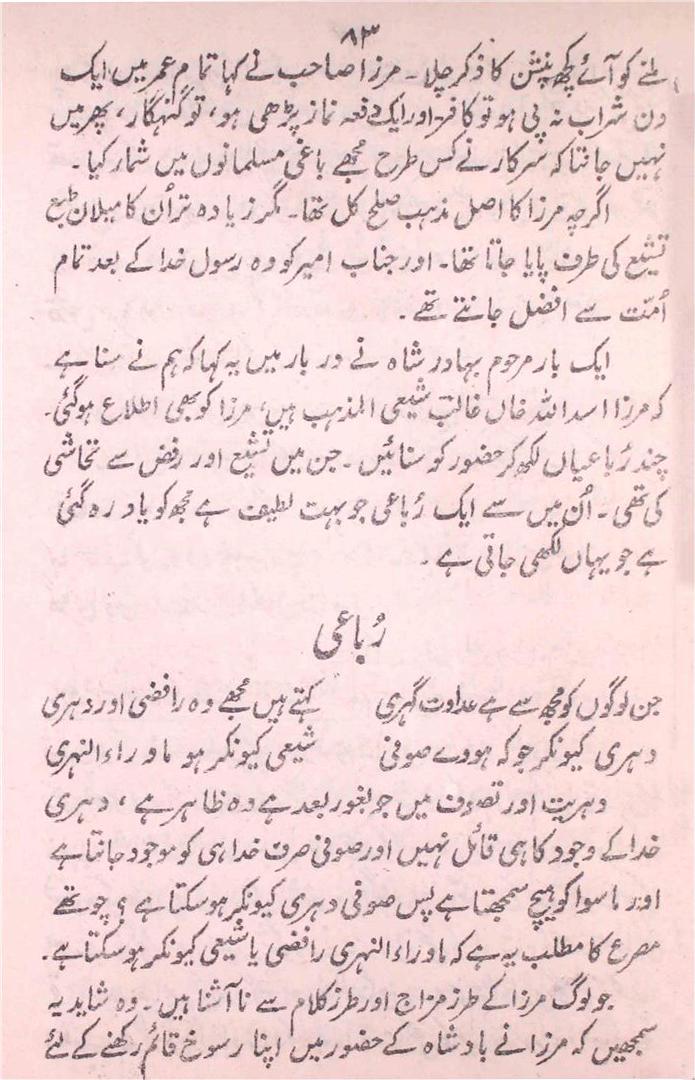 ۸۳
ملنے کو آئے کچھ پنشن کا ذکر چلا۔ مرزا صاحب نے کہا تمام عمر میں ایک
دن شراب نہ پی ہو تو کافر اور ایک دفعہ نماز پڑھی ہو، تو گنہگار، پھر میں
نہیں جانتا کہ سرکار نے کس طرح مجھے باغی مسلمانوں میں شمار کیا۔
اگرچہ مرزا کا اصل مذہب صلح کل تھا۔ مگر زیادہ تر اُن کا میلان طبع
تشیّع کی طرف پایا جاتا تھا۔ اور جناب امیر کو وہ رسول خدا کے بعد تمام
اُمّت سے افضل جانتے تھے۔
ایک بار مرحوم بہادر شاہ نے دربار میں یہ کہا کہ ہم نے سنا ہے
کہ مرزا اسد اللہ خاں غالب شیعی المذہب ہیں، مرزا کو بھی اطلاع ہو گئی۔
چند رُباعیاں لکھ کر حضور کو سنائیں۔ جن میں تشیع اور رفض سے تحاشی
کی تھی۔ اُن میں سے ایک رُباعی جو بہت لطیف ہے مجھ کو یاد رہ گئی
ہے جو یہاں لکھی جاتی ہے۔
رُباعی
جن لوگوں کو مجھ سے ہے عداوت گہری کہتے ہیں مجھے وہ رافضی اور دہری
دہری کیونکر جو کہ ہووے صوفی شیعی کیونکر ہو ماوراء النہری
دہریت اور تصوف میں جو بغور بعد ہے وہ ظاہر ہے، دہری
خدا کے وجود کا ہی قائل نہیں اور صوفی صرف خدا ہی کو موجود جانتا ہے
اور ماسوا کو ہیچ سمجھتا ہے پس صوفی دہری کیونکر ہو سکتا ہے؟ چوتھے
مصرع کا مطلب یہ ہے کہ ماوراء النہری رافضی یا شیعی کیونکر ہو سکتا ہے۔
جو لوگ مرزا کے طرز مزاج اور طرز کلام سے ناآشنا ہیں۔ وہ شاید یہ
سمجھیں کہ مرزا نے بادشاہ کے حضور میں اپنا رسوخ قائم رکھنے کے لئے